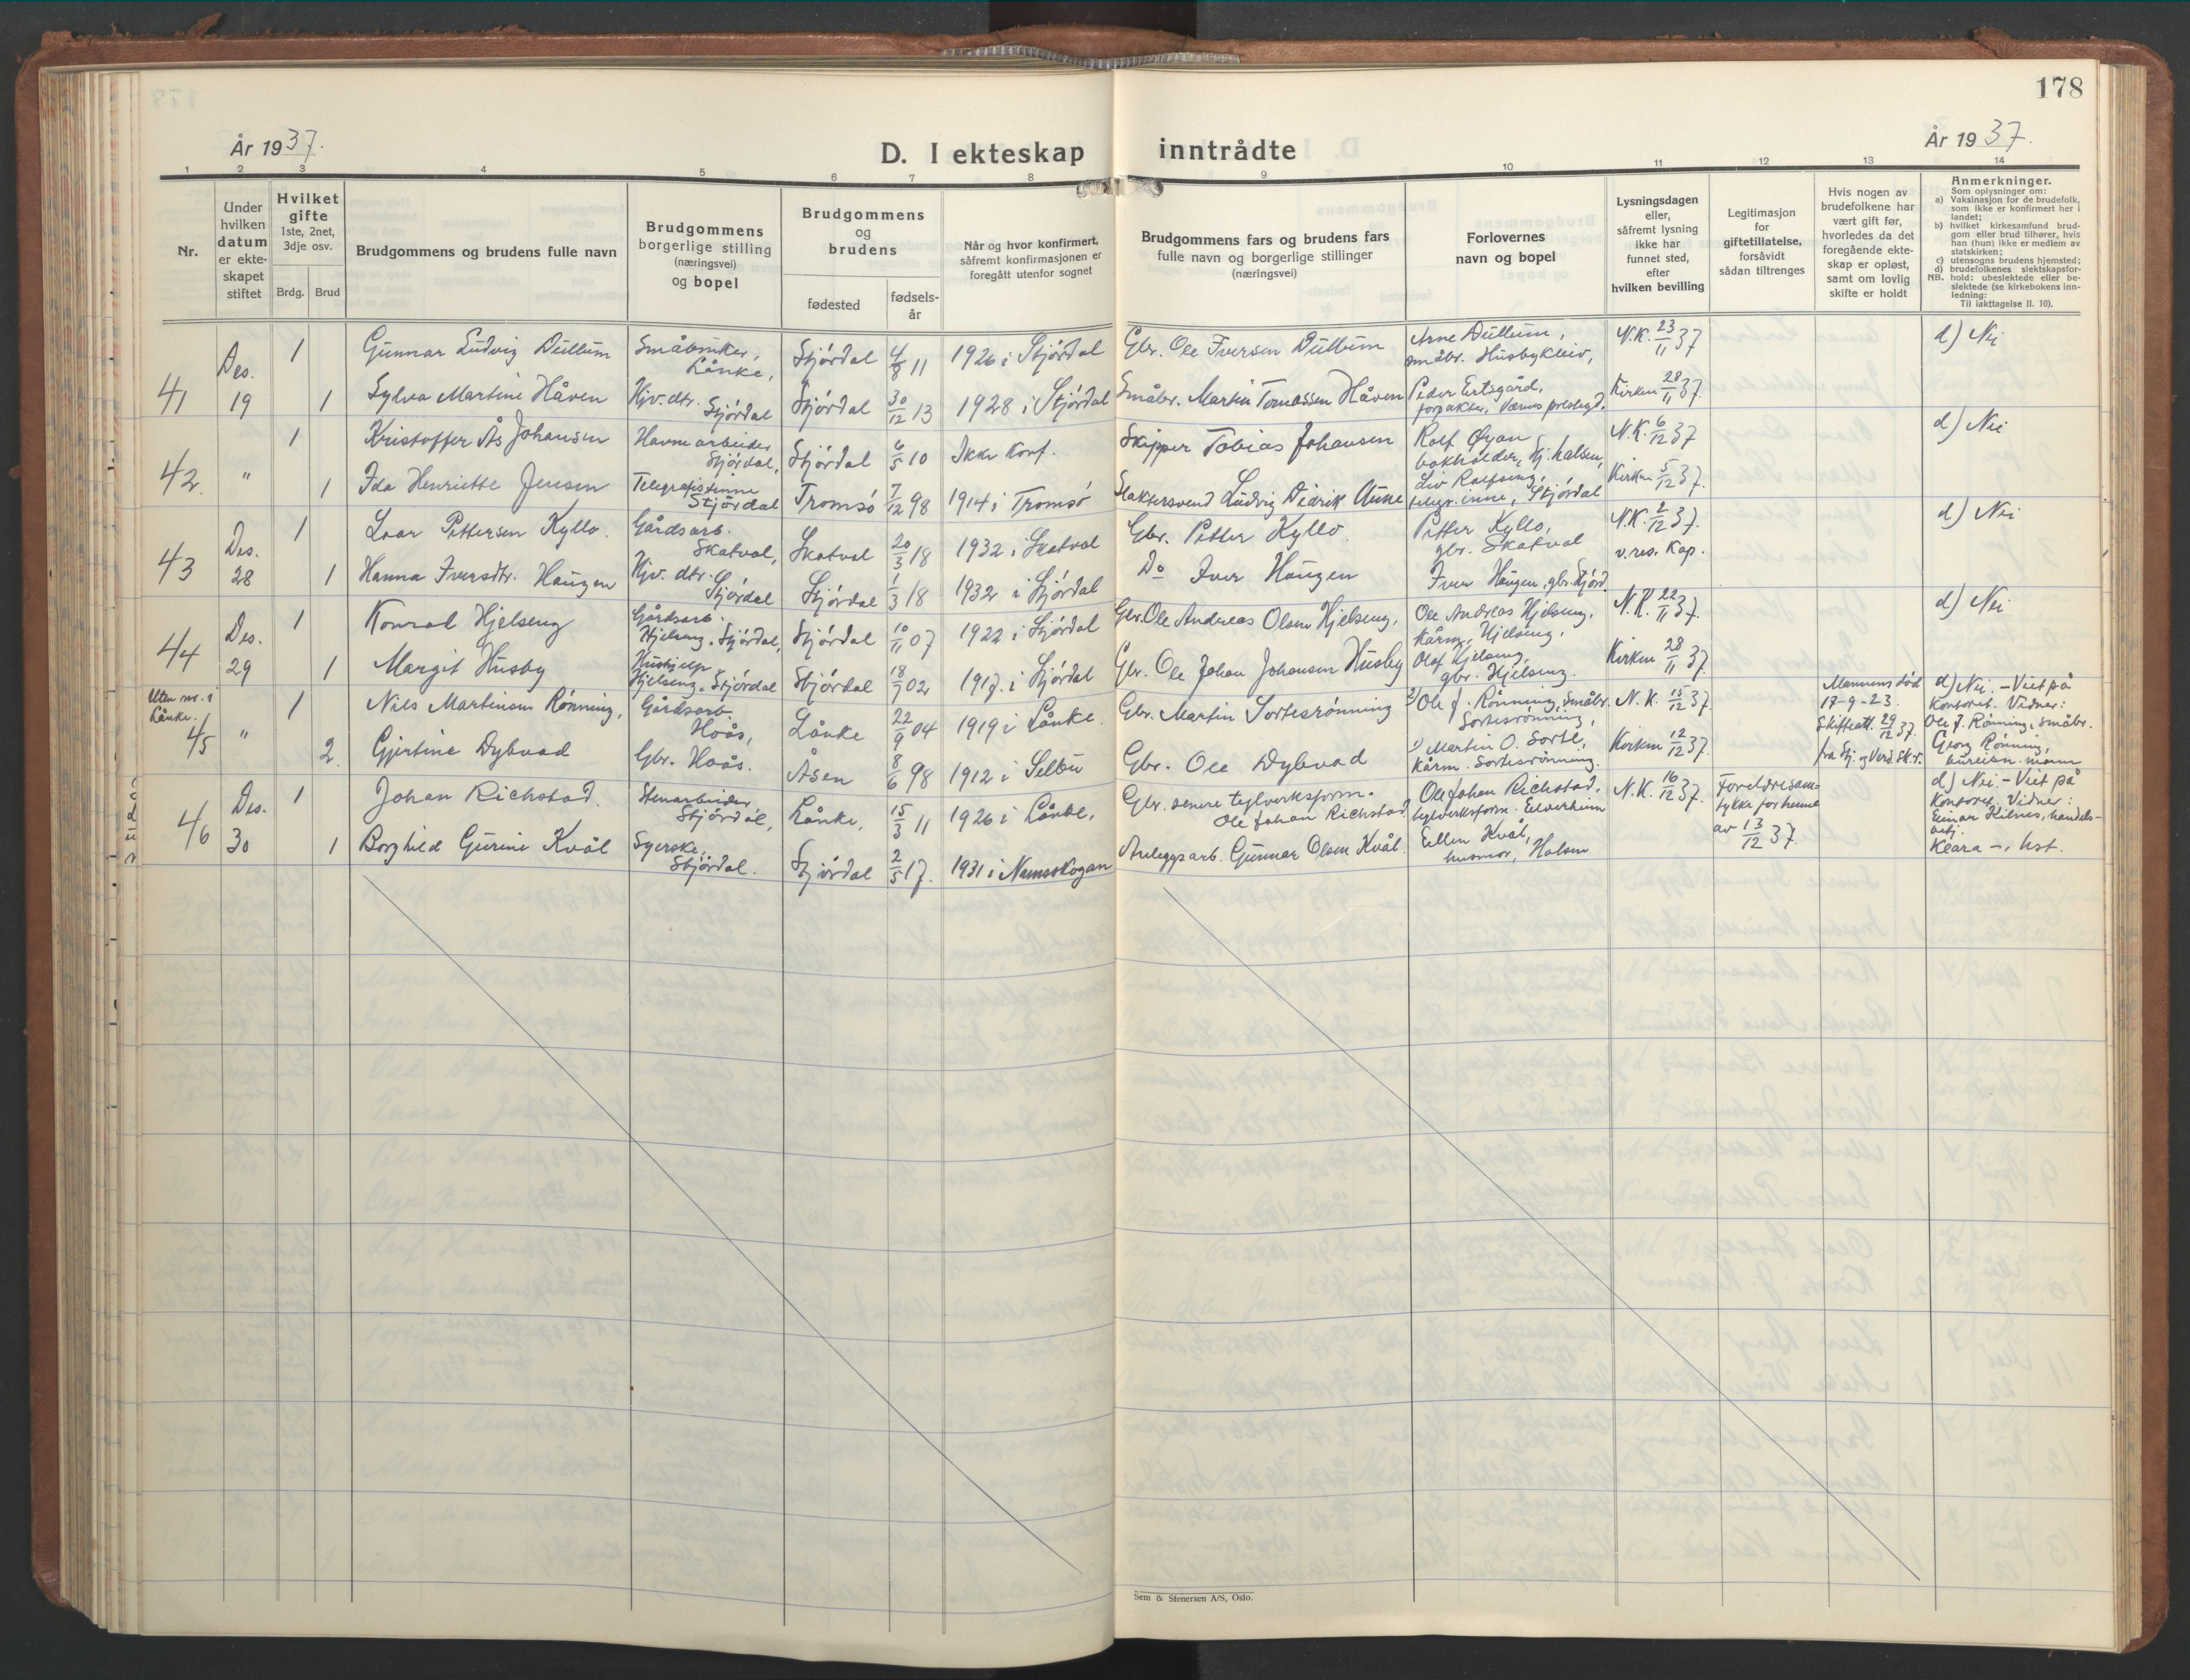 178
År 1937.
D. I ekteskap inntrådte
År 1937.
1 2 3 4 5 6 7 8 9 10 11 12 13 14
Nr.
Under
hvilken
datum
er ekte-
skapet
stiftet
Hvilket
gifte
1ste, 2net,
3dje osv.
Brdg. Brud
Brudgommens og brudens fulle navn
Brudgommens
borgerlige stilling
(næringsvei)
og bopel
Brudgommens
og
brudens
fødested
fødsels-
år
Når og hvor konfirmert,
såfremt konfirmasjonen er
foregått utenfor sognet
Brudgommens fars og brudens fars
fulle navn og borgerlige stillinger
(næringsvei)
Forlovernes
navn og bopel
Lysningsdagen
eller,
såfremt lysning
ikke har
funnet sted,
efter
hvilken bevilling
Legitimasjon
for
giftetillatelse,
forsåvidt
sådan tiltrenges
Hvis nogen av
brudefolkene har
vært gift før,
hvorledes da det
foregående ekte-
skap er opløst,
samt om lovlig
skifte er holdt
Anmerkninger.
Som oplysninger om:
a) Vaksinasjon for de brudefolk,
som ikke er konfirmert her i
landet;
b) hvilket kirkesamfund brud-
gom eller brud tilhører, hvis
han (hun) ikke er medlem av
statskirken;
c) utensogns brudens hjemsted;
d) brudefolkenes slektskapsfor-
hold: ubeslektede eller be-
slektede (se kirkebokens inn-
ledning:
NB. Til iakttagelse II. 10).
41
Des.
19
1
Gunnar Ludvig Dullum
Småbruker,
Lånke,
Stjørdal 4/8 11 1926 i Stjørdal
Gbr. Ole Iversen Dullum
Arne Dullum,
småbr. Husbykleiv,
N.K. 23/11 37
d) Nei
1
Sylva Martine Håven
Hjv. dtr.
Stjørdal
Stjørdal 30/12 13 1928 i Stjørdal
Småbr. Martin Tomassen Håven
Peder Ertsgård,
forpakter, Værnes prestegd.
Kirken 28/11 37.
42. "
1
Kristoffer Ås Johansen
Havnearbeider
Stjørdal,
Stjørdal 6/5 10 Ikke konf.
Skipper Tobias Johansen
Rolf Øyan
bokholder, Stj. halsen,
N.K. 6/12 37
d) Nei
1
Ida Henriette Jensen
Telegrafistinne
Stjørdal
Tromsø 7/12 98 1914 i Tromsø
Slaktersvend Ludvig Didrik Aune
Liv Rolfseng,
telegr.inne, Stjørdal
Kirken 5/12 37.
43
Des.
28
1
Loar Pettersen Kyllo.
Gårdsarb.
Skatval,
Skatval 20/3 18 1932 i Skatval
Gbr. Petter Kyllo.
Petter Kyllo,
gbr. Skatval
N.K. 2/12 37.
v. res. kap.
d) Nei
1
Hanna Iversdtr. Haugen
Hjv. dtr.
Stjørdal
Stjørdal 1/3 18 1932 i Stjørdal
Do Iver Haugen
Iver Haugen, gbr. Stjørd.
44
Des.
29
1
Konrad Hjelseng
Gårdsarb.
Hjelseng, Stjørdal,
Stjørdal 10/11 07 1922 i Stjørdal
Gbr. Ole Andreas Olsen Hjelseng,
Ole Andreas Hjelseng,
kårm, Hjelseng,
N.K. 22/11 37.
d) Nei
1
Margit Husby
Hushjelp
Hjelseng, Stjørdal
Stjørdal 18/7 02 1917 i Stjørdal
Gbr. Ole Johan Johansen Husby
Olaf Hjelseng,
gbr. Hjelseng.
Kirken 28/11 37.
Uten nr. i
Lånke.
45 "
1
Nils Martinsen Rønning,
Gårdsarb.
Hoås,
Lånke 22/9 04 1919 i Lånke.
Gbr. Martin Sortesrønning
2) Ole J. Rønning, småbr.
Sortesrønning,
N.K. 15/12 37.
Mannens død
17-9-23.
Skifteatt. 29/12 37.
fra Stj. og Verd. sk.r.
d) Nei. - Viet på
kontoret. Vidner:
Ole J. Rønning, småbr.
Georg Rønning,
bureisn. mann
2.
Gjertine Dybvad
Gbr. Hoås.
Åsen 8/6 98 1912 i Selbu
Gbr. Ole Dybvad
1) Martin O. Sorte,
kårm. Sortesrønning.
Kirken 12/12 37.
46
Des.
30
1
Johan Richstad.
Stenarbeider,
Stjørdal,
Lånke, 15/3 11 1926 i Lånke,
Gbr. senere teglverksform.
Ole Johan Richstad
Ole Johan Richstad,
teglverksform. Elverheim
N.K. 16/12 37.
Foreldresam-
tykke for henne
av 13/12 37.
d) Nei - Viet på
kontoret. Vidner:
Einar Kilnes, handels-
betj.
Klara -, hst.
1
Borghild Gurine Kvål
Syerske,
Stjørdal.
Stjørdal 2/5 17. 1931 i Namsskogan
Anleggsarb. Gunnar Olsen Kvål.
Ellen Kvål,
husmor, Halsen
Sem & Stenersen A/S, Oslo.